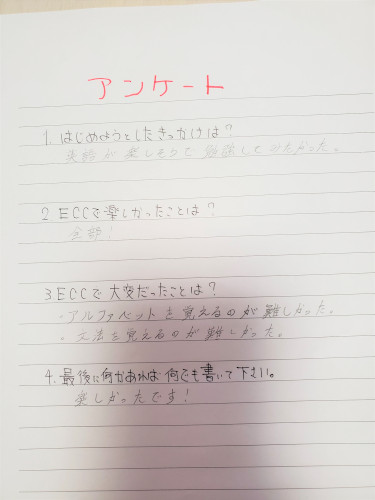 アンケート
1. はじめようとしたきっかけは?
英語が楽しそうで勉強してみたかった。
2 ECCで楽しかったことは?
全部!
3 ECCで大変だったことは?
・アルファベットを覚えるのが難しかった。
・文法を覚えるのが難しかった。
4. 最後に何かあれば何でも書いて下さい。
楽しかったです!